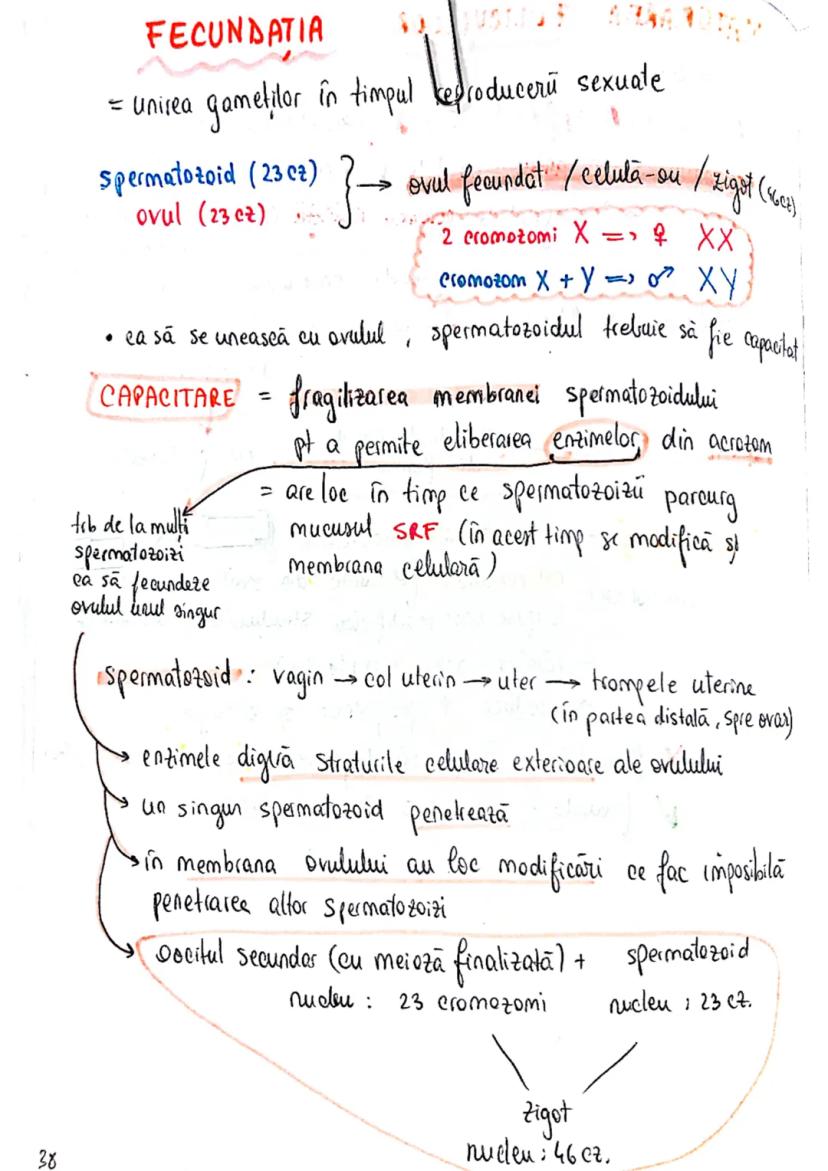 FECUNDAȚIA
= unirea gameților în timpul reproducerii sexuate
spermatozoid (23 cz)
ovul (23 cz)
→ ovul fecundat / celulă-ou / zigot (46cz)
2 cromozomi X => ♀ XX
cromozom X + Y => ♂ XY
• ca să se unească cu ovulul, spermatozoidul trebuie să fie capacitat
CAPACITARE = fragilizarea membranei spermatozoidului
pt a permite eliberarea enzimelor din acrozom
= are loc în timp ce spermatozoizii parcurg
mucusul SRF (în acest timp se modifică și
membrana celulară)
trb de la mulți
spermatozoizi
ca să fecundeze
ovulul unul singur
spermatozoid : vagin → col uterin → uter → trompele uterine
(în partea distală, spre ovar)
enzimele digeră straturile celulare exterioare ale ovulului
un singur spermatozoid penetrează
în membrana ovulului au loc modificări ce fac imposibilă
penetrarea altor spermatozoizi
Oocitul secundar (cu meioză finalizată) + spermatozoid
nucleu : 23 cromozomi nucleu : 23 cz.
zigot
nucleu : 46 cz.
38